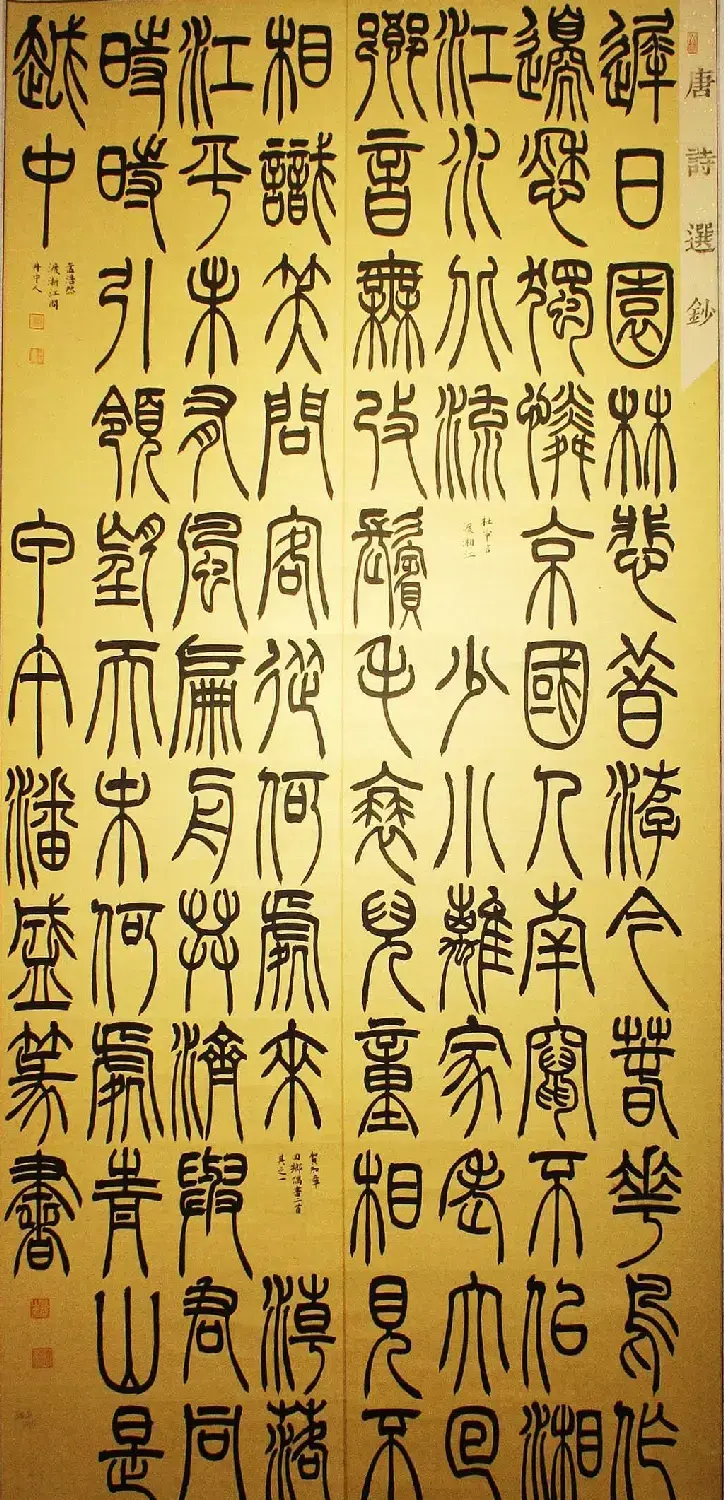 唐詩選鈔
遲日園林悲昔游今春華鳥作
邊愁獨憐京國人南竄不似湘
江水北流
杜審言
渡湘江
少小離家老大回
鄉音無改鬢毛衰兒童相見不
相識笑問客從何處來
賀知章
回鄉偶書二首
其之一
潮落
江平未有風扁舟共濟與君同
時時引領望天末何處青山是
越中
孟浩然
渡浙江問
舟中人
甲午潘盛篆書